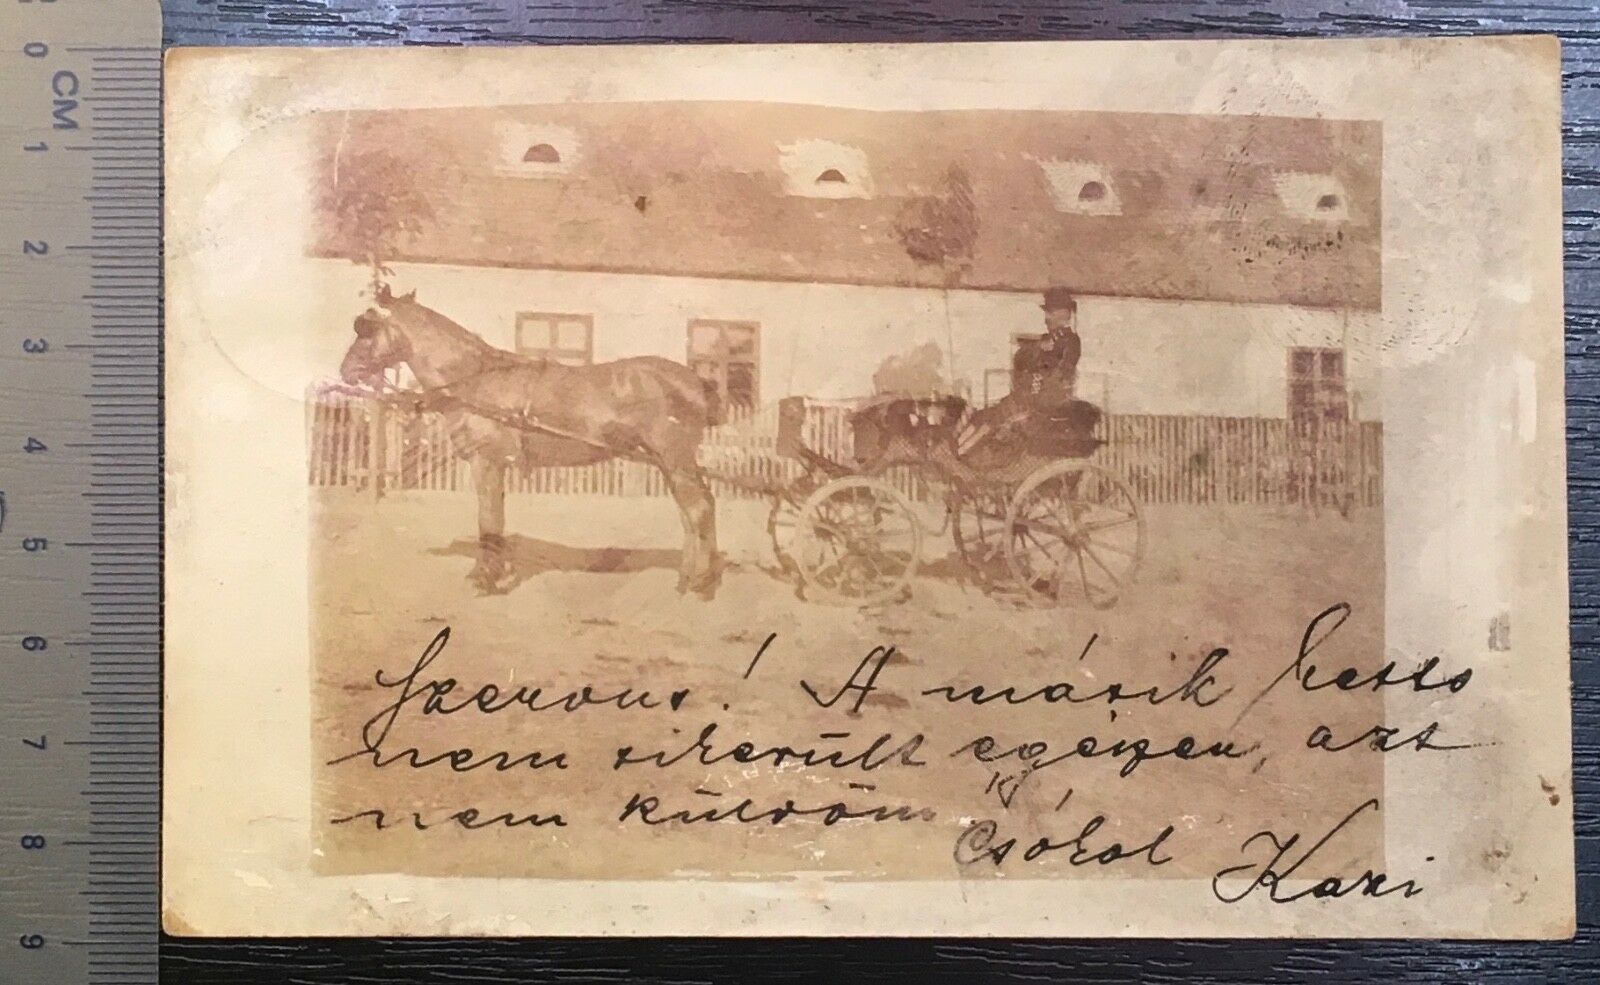 0 CM
1
2
3
4
5
6
7
8
9
Szervus! A másik
nem sikerült egészen, azt
nem küldöm
Csókol Kazi